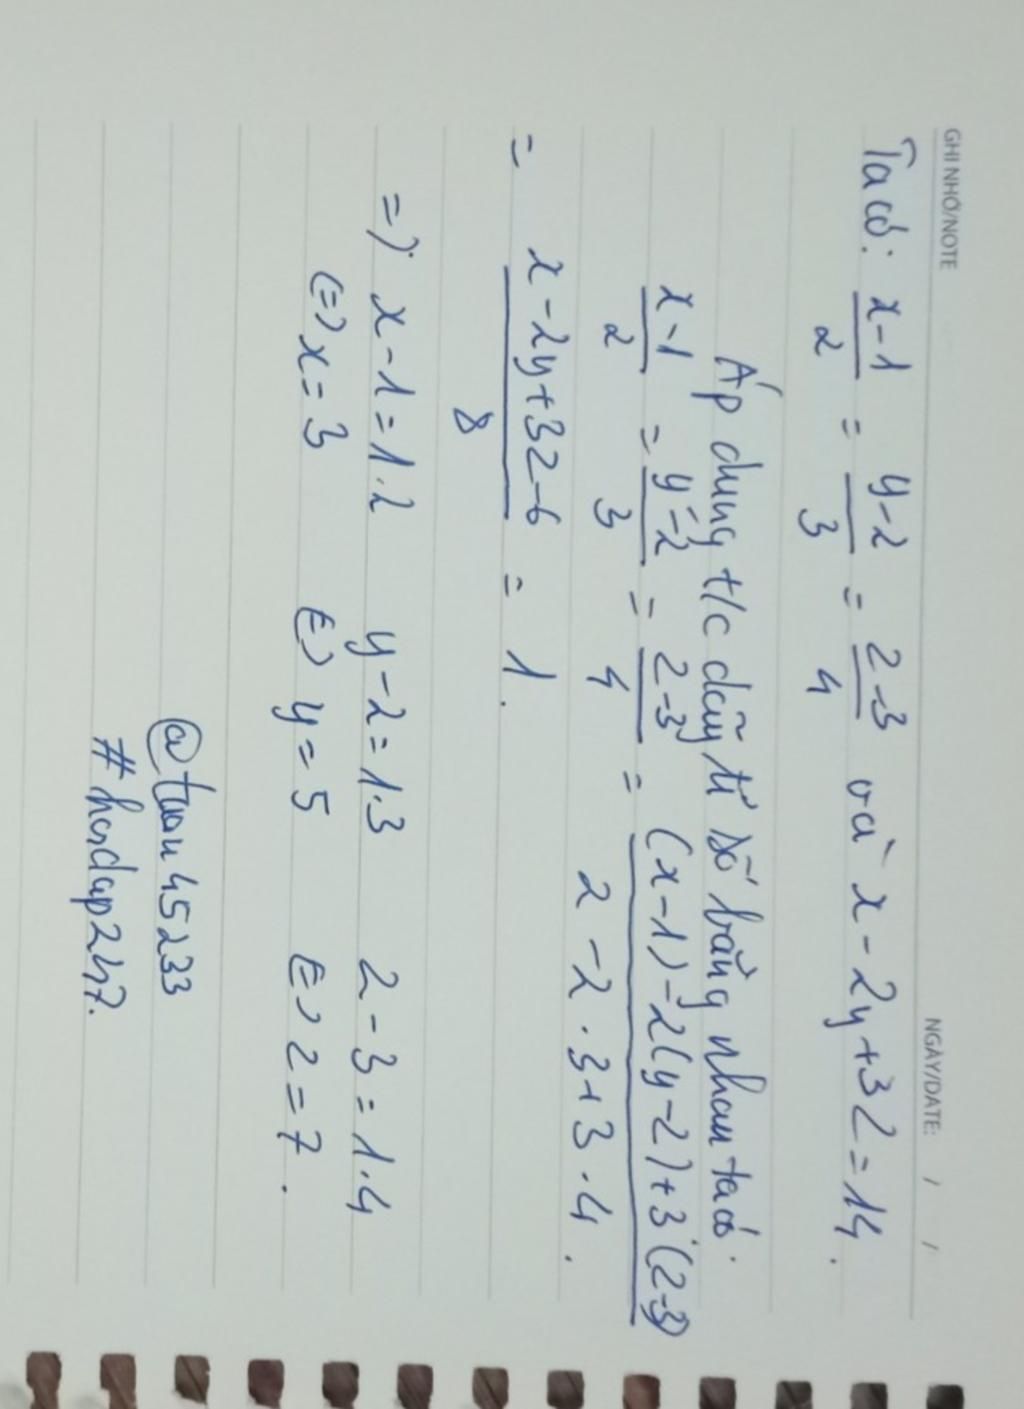 GHI NHỚ/NOTE NGÀY/DATE: / /
Ta có: x-1/2 = y-2/3 = z-3/4 và x-2y+3z=14.
Áp dụng t/c dãy tỉ số bằng nhau ta có.
x-1/2 = y-2/3 = z-3/4 = (x-1)-2(y-2)+3(z-3)/2-2.3+3.4.
= x-2y+3z-6/8 = 1.
=> x-1=1.2 y-2=1.3 z-3=1.4
(=) x=3 (=) y=5 (=) z=7.
@tuan45233
#hoidap247.